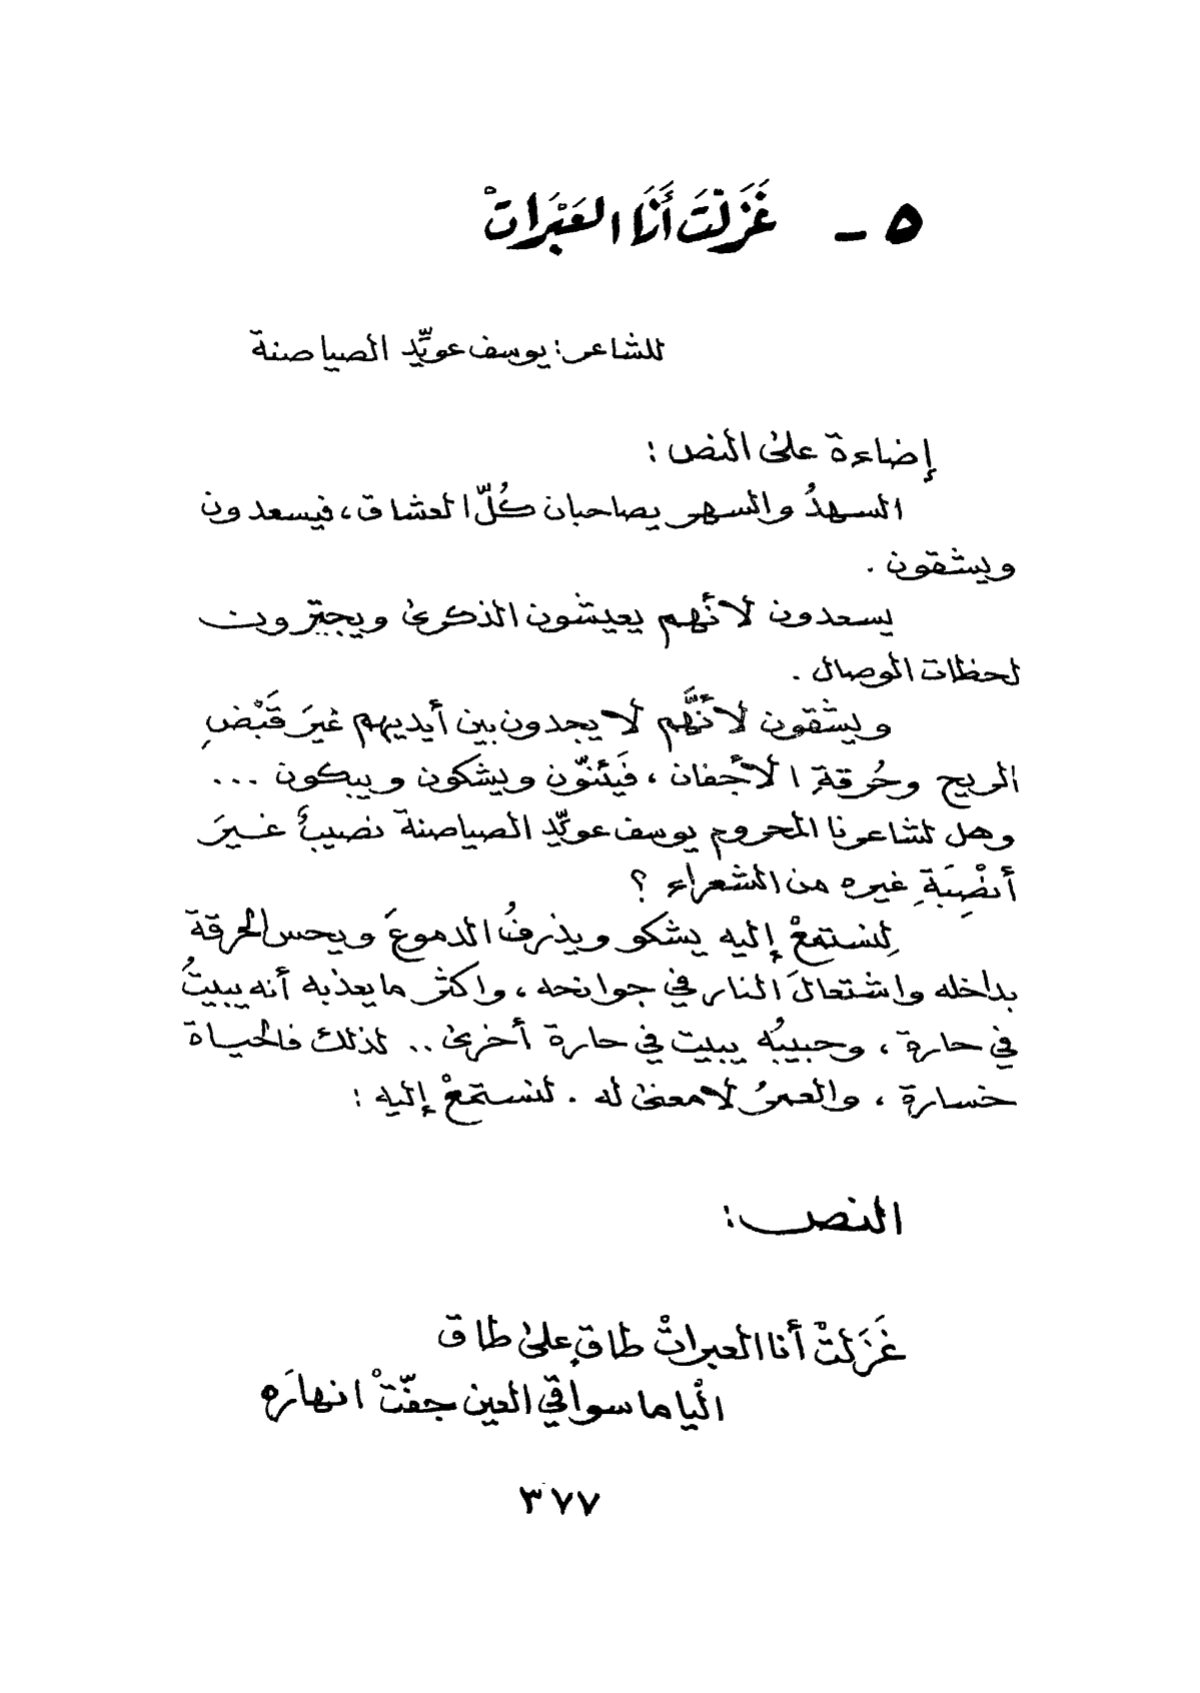 ٥ - غَزَلْتَ أَنَا العَبَرَاتْ
للشاعر: يوسف عويِّد الصياصنة
إضاءة على النص:
السهدُ والسهر يصاحبان كُلّ العشاق، فيسعدون
ويشقون.
يسعدون لأنهم يعيشون الذكرى ويجترّون
لحظات الوصال.
ويشقون لأنَّهم لا يجدون بين أيديهم غيرَ قَبْضِ
الريح وحُرقةِ الأجفان، فَيئنّون ويشكون ويبكون ...
وهل لشاعرنا المحروم يوسف عويِّد الصياصنة نصيبٌ غيرَ
أنْصِبَةِ غيره من الشعراء؟
لِنستمعْ إليه يشكو ويذرفُ الدموعَ ويحس الحرقة
بداخله واشتعالَ النار في جوانحه، واكثر ما يعذبه أنه يبيتُ
في حارة، وحبيبُه يبيت في حارة أخرى.. لذلك فالحياة
خسارة، والعمرُ لا معنى له. لنستمعْ إليه:
النص:
غَزَلتْ أنا العبراتْ طاقٍ على طاق
الْيا ما سواقي العين جفّتْ انهارَه
٣٧٧